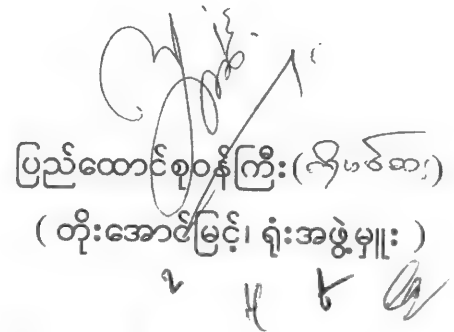 ပြည်ထောင်စုဝန်ကြီး(ကိုယ်စား)
( တိုးအောင်မြင့်၊ ရုံးအဖွဲ့မှူး )